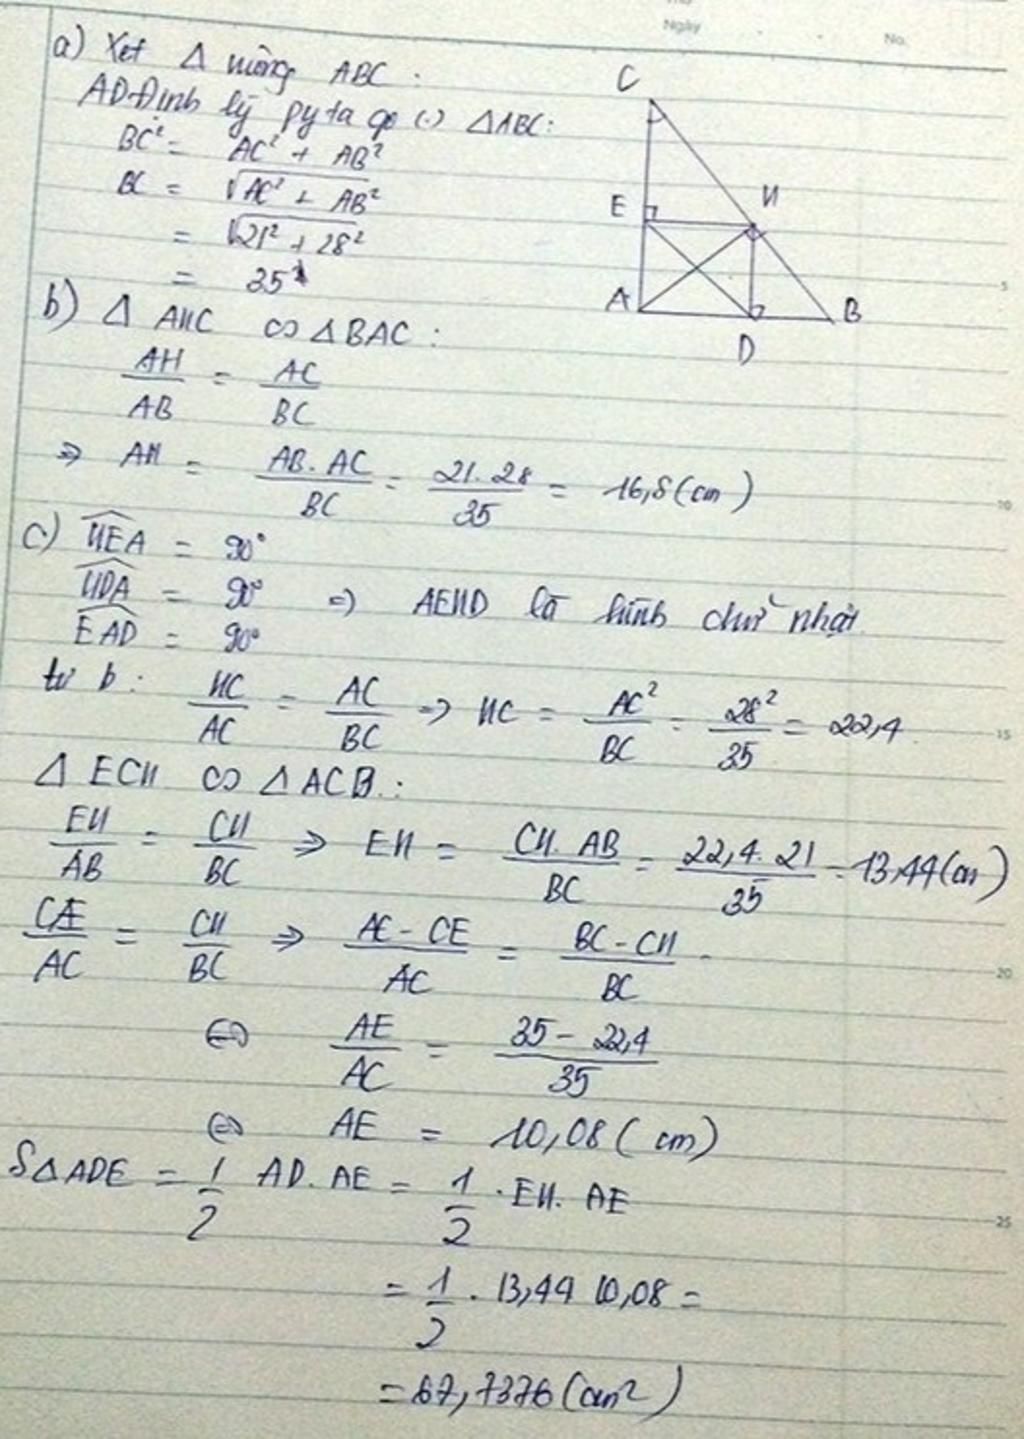 Ngày No.
a) Xét Δ vuông ABC :
AD Định lý pytago (.) ΔABC:
BC² = AC² + AB²
BC = √AC² + AB²
= √21² + 28²
= 35
C
E H
A D B
b) Δ AHC ∽ Δ BAC :
AH/AB = AC/BC
=> AH = AB.AC/BC = 21.28/35 = 16,8 (cm)
c) HEA = 90°
HDA = 90° => AEHD là hình chữ nhật
EAD = 90°
từ b : HC/AC = AC/BC => HC = AC²/BC = 28²/35 = 22,4
Δ ECH ∽ Δ ACB :
EH/AB = CH/BC => EH = CH.AB/BC = 22,4.21/35 = 13,44 (cm)
CE/AC = CH/BC => AC - CE/AC = BC - CH/BC
<=> AE/AC = 35 - 22,4/35
<=> AE = 10,08 (cm)
SΔADE = 1/2 AD.AE = 1/2 . EH.AE
= 1/2 . 13,44 10,08 =
= 67,7376 (cm²)
5
10
15
20
25